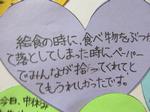 給食の時に、食べ物をぶつ
て落としてしまった時にペーパー
でみんなが拾ってくれてと
てもうれしかったです。
今日、中休み